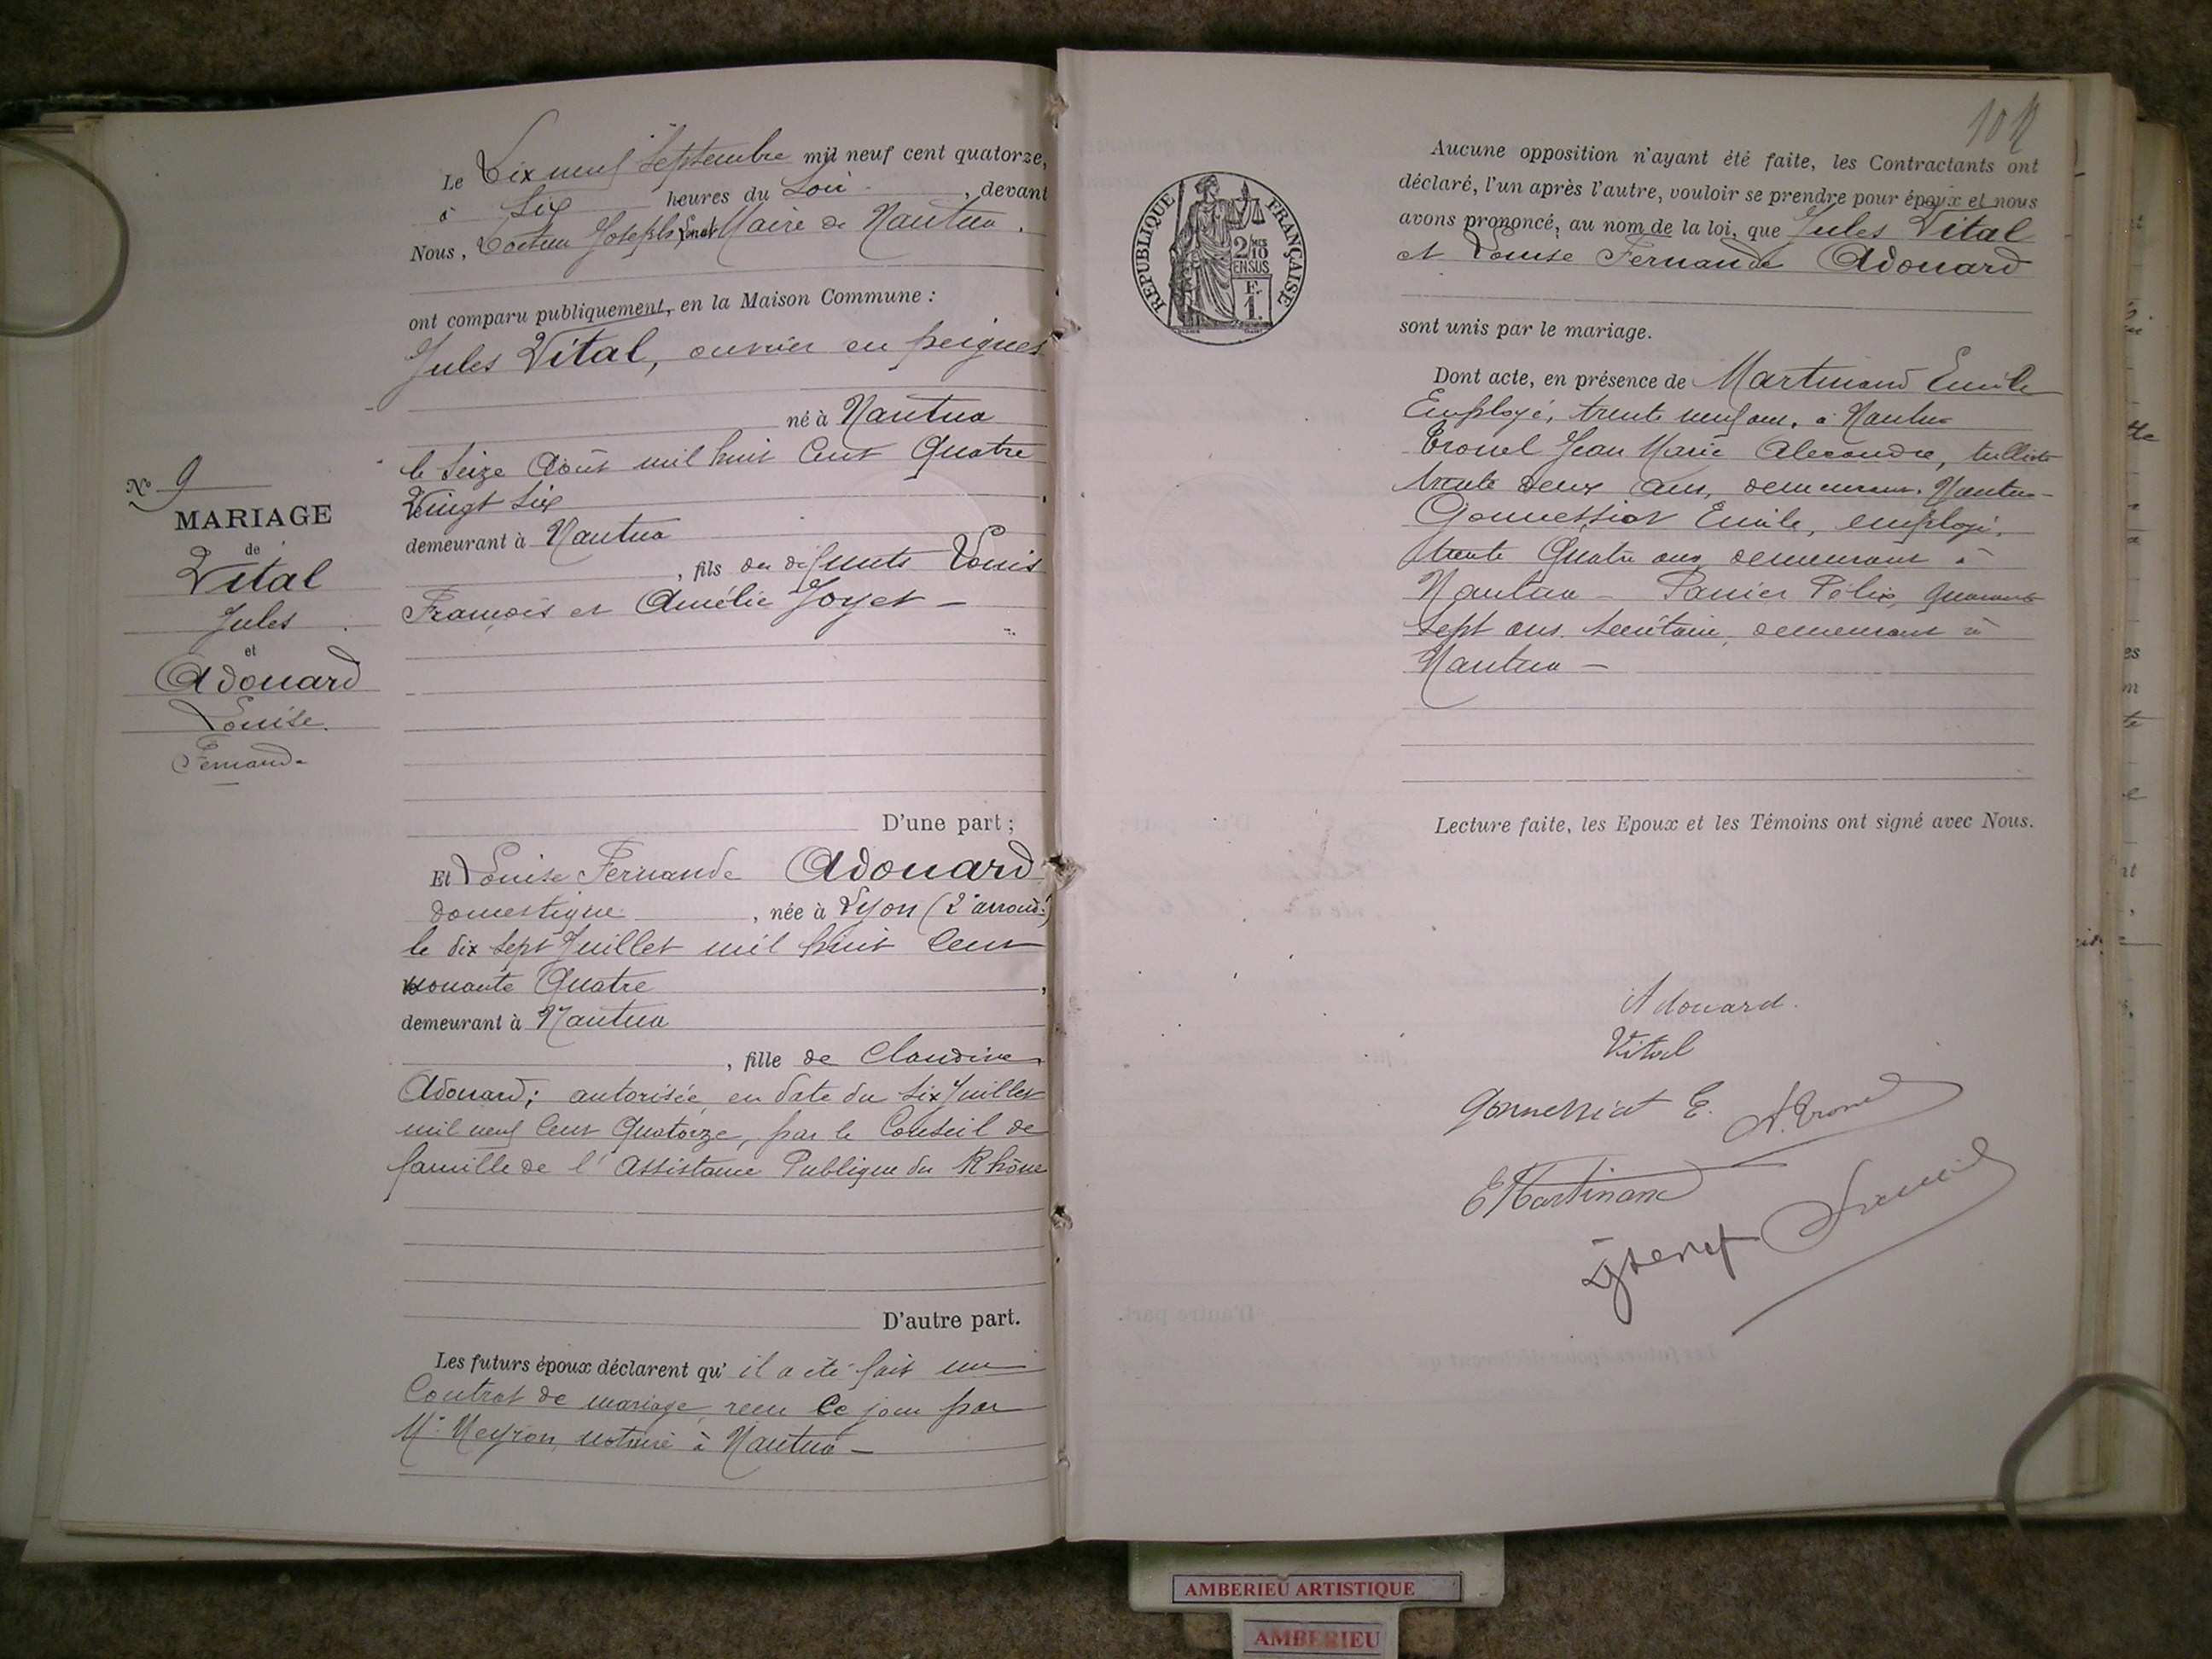 Le Dix neuf Septembre mil neuf cent quatorze,
à Six heures du Soir, devant
Nous, Docteur Joseph Maire de Nantua.
ont comparu publiquement, en la Maison Commune :
Jules Vital, ouvrier en peignes
né à Nantua
le Seize Août mil huit Cent Quatre
Vingt Six
demeurant à Nantua
, fils de défunts Louis
François et Amélie Joyet -
N° 9
MARIAGE
de
Vital
Jules
et
Adouard
Louise
Fernande
D'une part ;
Et Louise Fernande Adouard
domestique, née à Lyon (2e arrond.t)
le dix sept Juillet mil huit Cent
nonante Quatre,
demeurant à Nantua
, fille de Claudine
Adouard; autorisée, en date du Six Juillet
mil neuf Cent Quatorze, par le Conseil de
famille de l'Assistance Publique du Rhône
D'autre part.
Les futurs époux déclarent qu'il a été fait un
Contrat de mariage, reçu Ce jour par
Me Meyron, notaire à Nantua -
102
REPUBLIQUE FRANÇAISE
2/10
EN SUS
F.
1.
Aucune opposition n'ayant été faite, les Contractants ont
déclaré, l'un après l'autre, vouloir se prendre pour époux et nous
avons prononcé, au nom de la loi, que Jules Vital
et Louise Fernande Adouard
sont unis par le mariage.
Dont acte, en présence de Martinand Emile
Employé, trente neuf ans, à Nantua
Tronel Jean Marie Alexandre, tulliste
trente deux ans, demeurant Nantua -
Gonnessiat Emile, employé,
trente Quatre ans, demeurant à
Nantua - Panier Félix, quarante
sept ans, Secrétaire, demeurant à
Nantua -
Lecture faite, les Epoux et les Témoins ont signé avec Nous.
Adouard.
Vital
Gonnessiat E. A. Tronel
E Martinand
AMBERIEU ARTISTIQUE
AMBERIEU